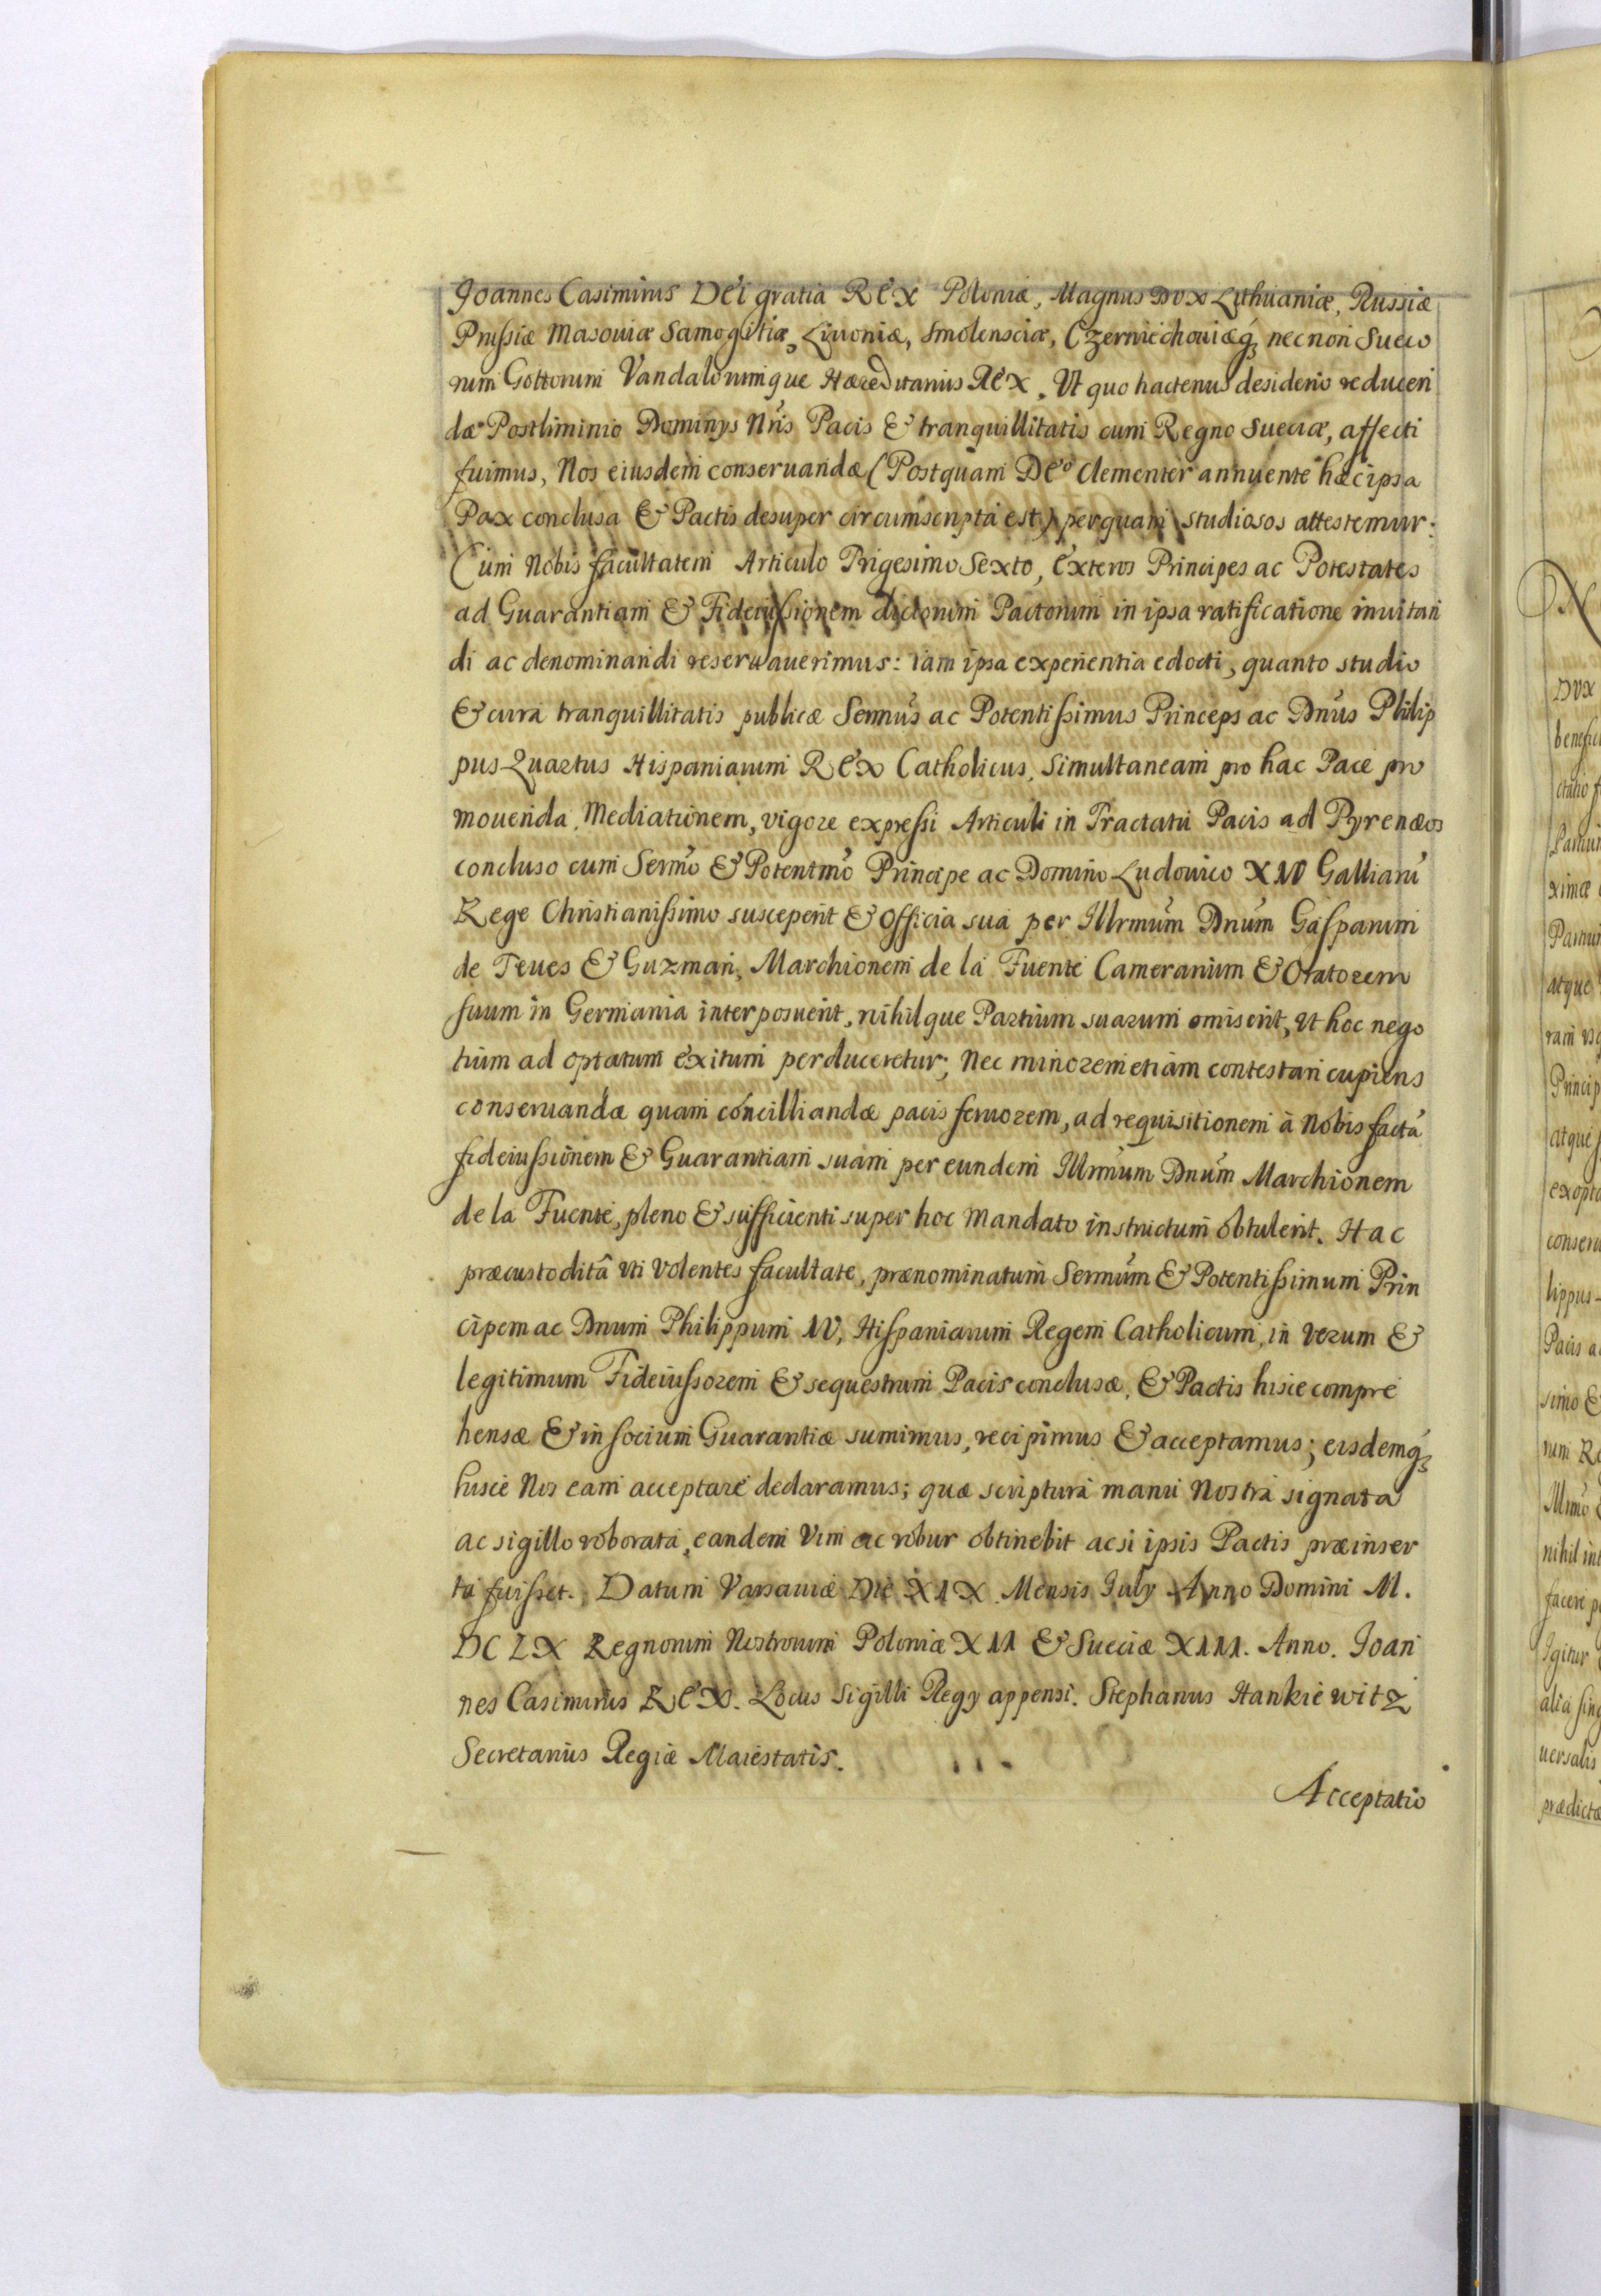 Joannes Casimirus Dei gratia Rex Poloniæ, Magnus Dux Lithuaniæ, Russiæ
Prussiæ Masouiæ Samogitiæ, Liuoniæ, Smolensciæ, Czerniechouiæq́ꝫ necnon Sueco
rum Gottorum Vandalorumque Hæreditarius Rex. Ut quo hactenus desiderio reducen
dæ Postliminio Dominys Nr̃is Pacis & tranquillitatis cum Regno Sueciæ, affecti
fuimus, Nos eiusdem conseruandæ (Postquam Deo clementer annuente hæc ipsa
Pax conclusa & Pactis desuper circumscripta est) perquam studiosos attestemur:
Cum Nobis facultatem Articulo Trigesimo Sexto, Exteros Principes ac Potestates
ad Guarantiam & Fideiussionem dictorum Pactorum in ipsa ratificatione inuitan
di ac denominandi reseruauerimus: iam ipsa experientia edocti, quanto studio
& cura tranquillitatis publicæ Sermũs ac Potentissimus Princeps ac Dnũs Philip
pus Quartus Hispaniarum Rex Catholicus, simultaneam pro hac Pace pro
mouenda Mediationem, vigore expressi Articuli in Tractatu Pacis ad Pyrenæos
concluso cum Sermõ & Potentmõ Principe ac Domino Ludouico XIV Galliarũ
Rege Christianissimo susceperit & Officia sua per Illrmũm Dnũm Gasparum
de Teues & Guzman, Marchionem de la Fuente Camerarium & Oratorem
suum in Germania interposuerit, nihilque Partium suarum omiserit, ut hoc nego
tium ad optatum exitum perduceretur; Nec minorem etiam contestari cupiens
conseruandæ quam concilliandæ pacis feruorem, ad requisitionem à Nobis factã
fideiussionem & Guarantiam suam per eundem Illmũum Dnũm Marchionem
de la Fuente, pleno & sufficienti super hoc mandato instructum obtulerit. Hac
præcustoditâ uti volentes facultate, prænominatum Sermũm & Potentissimum Prin
cipem ac Dnum Philippum IV, Hispaniarum Regem Catholicum, in verum &
legitimum Fideiussorem & sequestrum Pacis conclusæ, & Pactis hisce compre
hensæ & in socium Guarantiæ sumimus, recipimus & acceptamus; eisdemq́ꝫ
hisce Nos eam acceptare declaramus; quæ scriptura manu Nostra signata
ac sigillo roborata, eandem Vim ac robur obtinebit acsi ipsis Pactis præinser
ta fuisset. Datum Varsauiæ Die XIX Mensis July Anno Domini M.
DCLX Regnorum Nostrorum Poloniæ XII & Sueciæ XIII. Anno. Joan
nes Casimirus Rex. Locus Sigilli Regy appensi. Stephanus Hankiewitz
Secretarius Regiæ Maiestatis.
Acceptatio